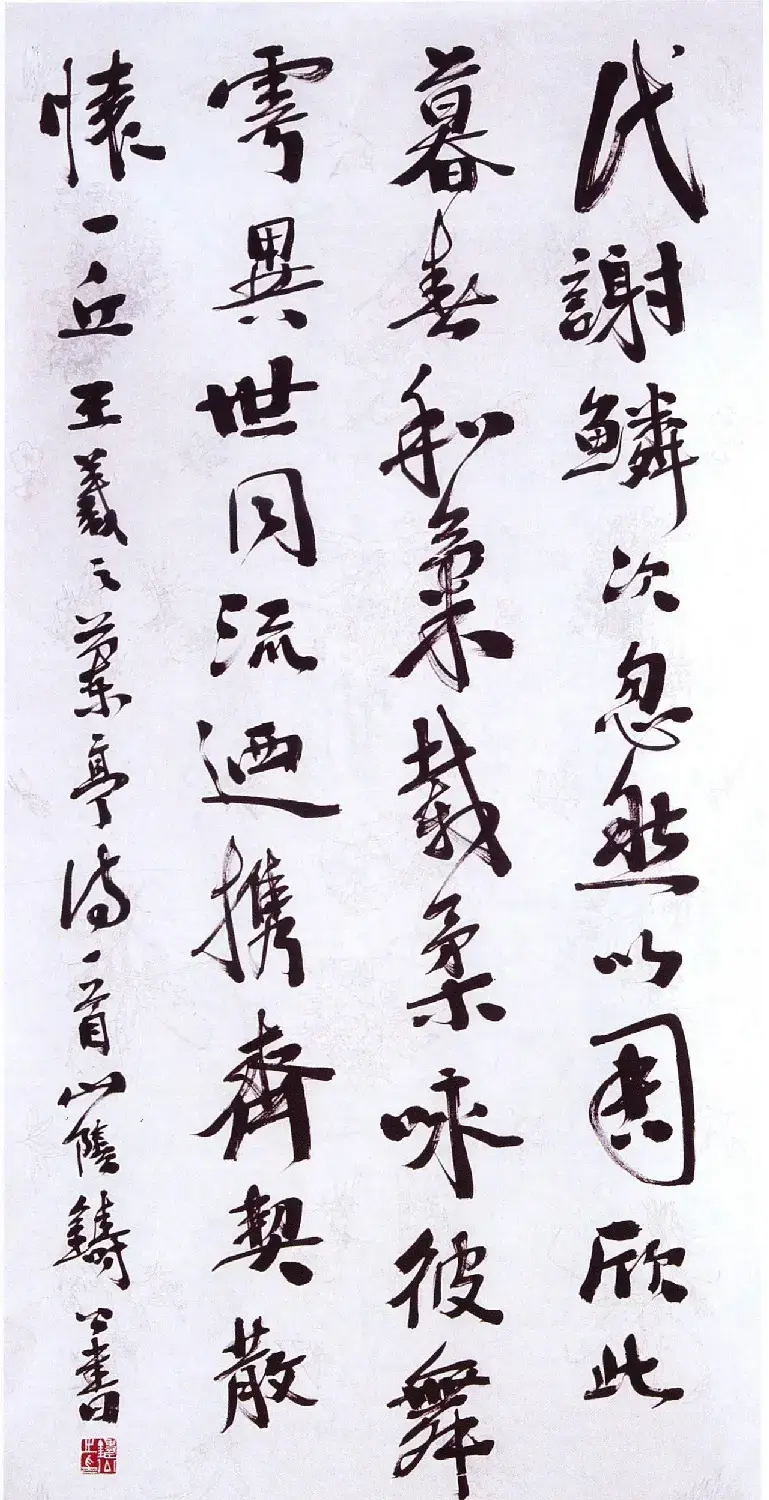 代謝鱗次忽然以周欣此
暮春和氣載柔咏彼舞
雩異世同流迺携齊契散
懷一丘王羲之蘭亭詩一首山陰鑄公書